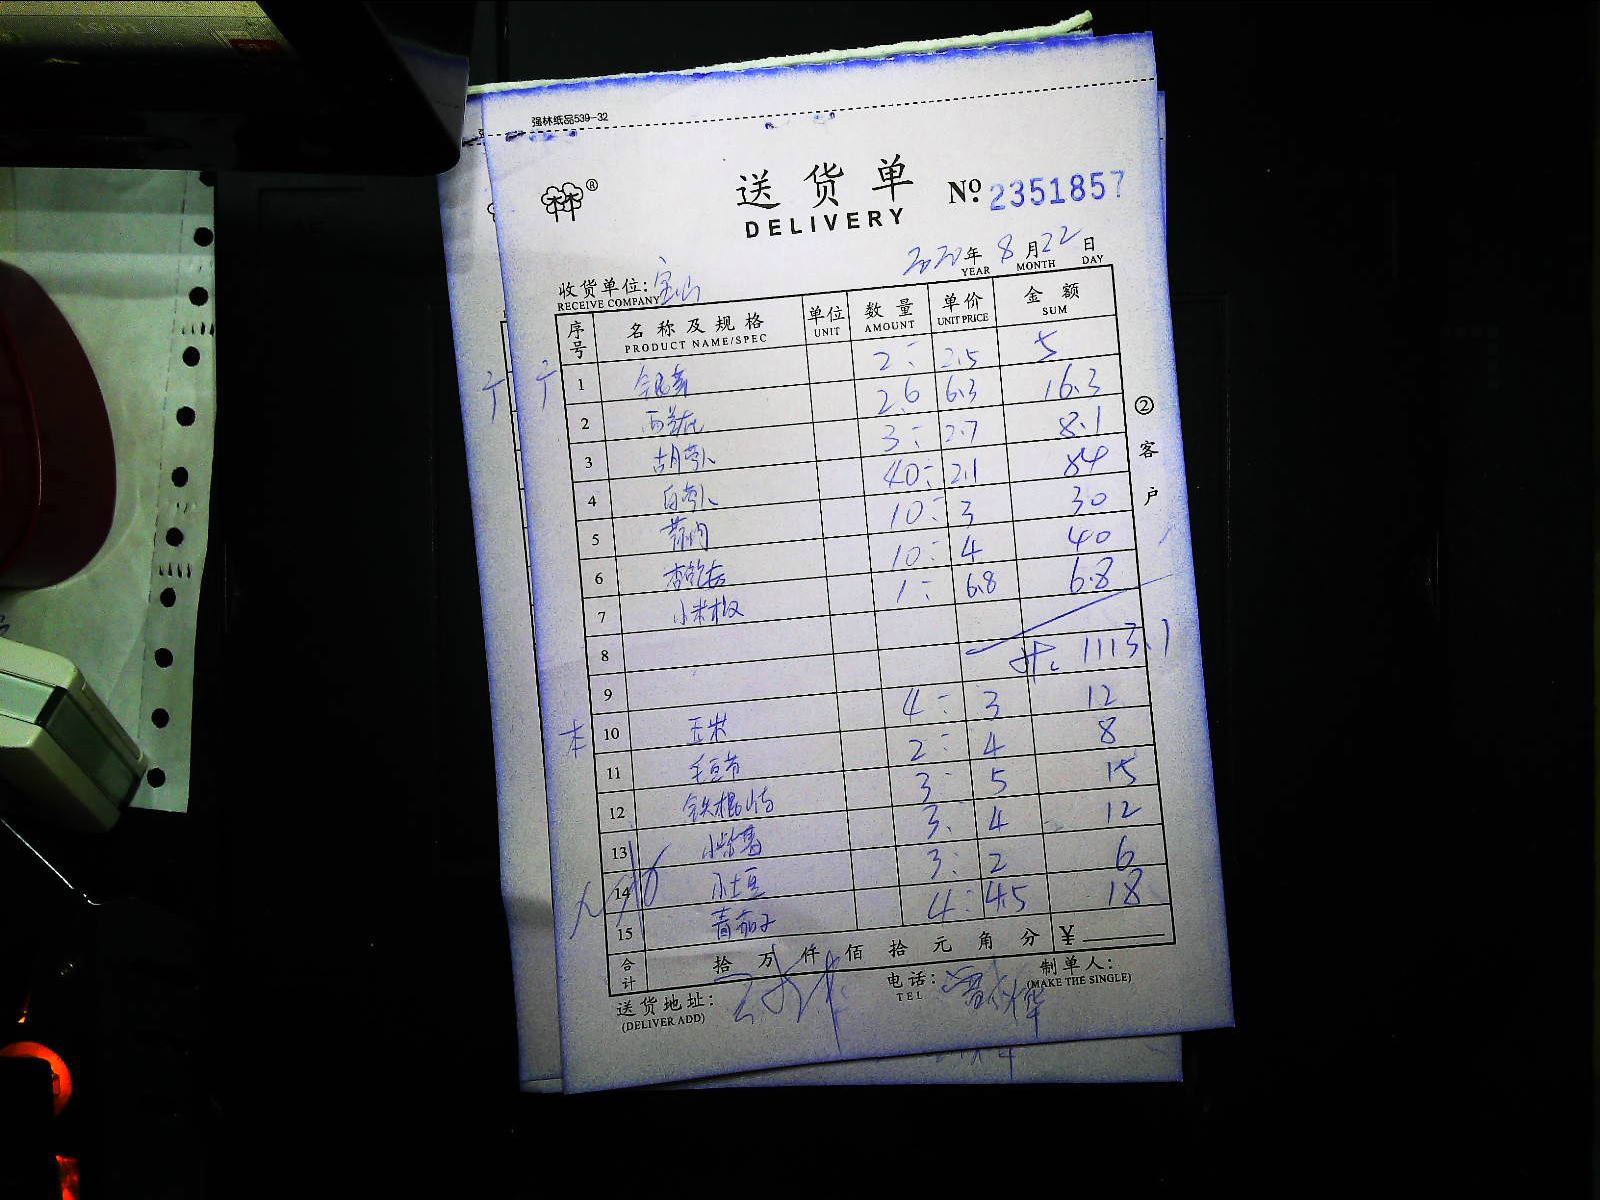 强林纸品539-32
送货单 №2351857
DELIVERY
2020年8月22日
YEAR MONTH DAY
收货单位:宝山
RECEIVE COMPANY
序号 名称及规格 单位 数量 单价 金额
PRODUCT NAME/SPEC UNIT AMOUNT UNIT PRICE SUM
1 2 2.5 5
2 西兰花 2.6 6.3 16.3
3 胡萝卜 3 2.7 8.1
4 白萝卜 40 2.1 84
5 10 3 30
6 杏鲍菇 10 4 40
7 小米椒 1 6.8 6.8
8 1113.1
9
10 玉米 4 3 12
11 毛豆节 2 4 8
12 铁棍山药 3 5 15
13 小紫薯 3 4 12
14 小土豆 3 2 6
15 青茄子 4 4.5 18
合计 拾 万 仟 佰 拾 元 角 分 ¥
送货地址: 电话: 制单人:
(DELIVER ADD) TEL (MAKE THE SINGLE)
②客户